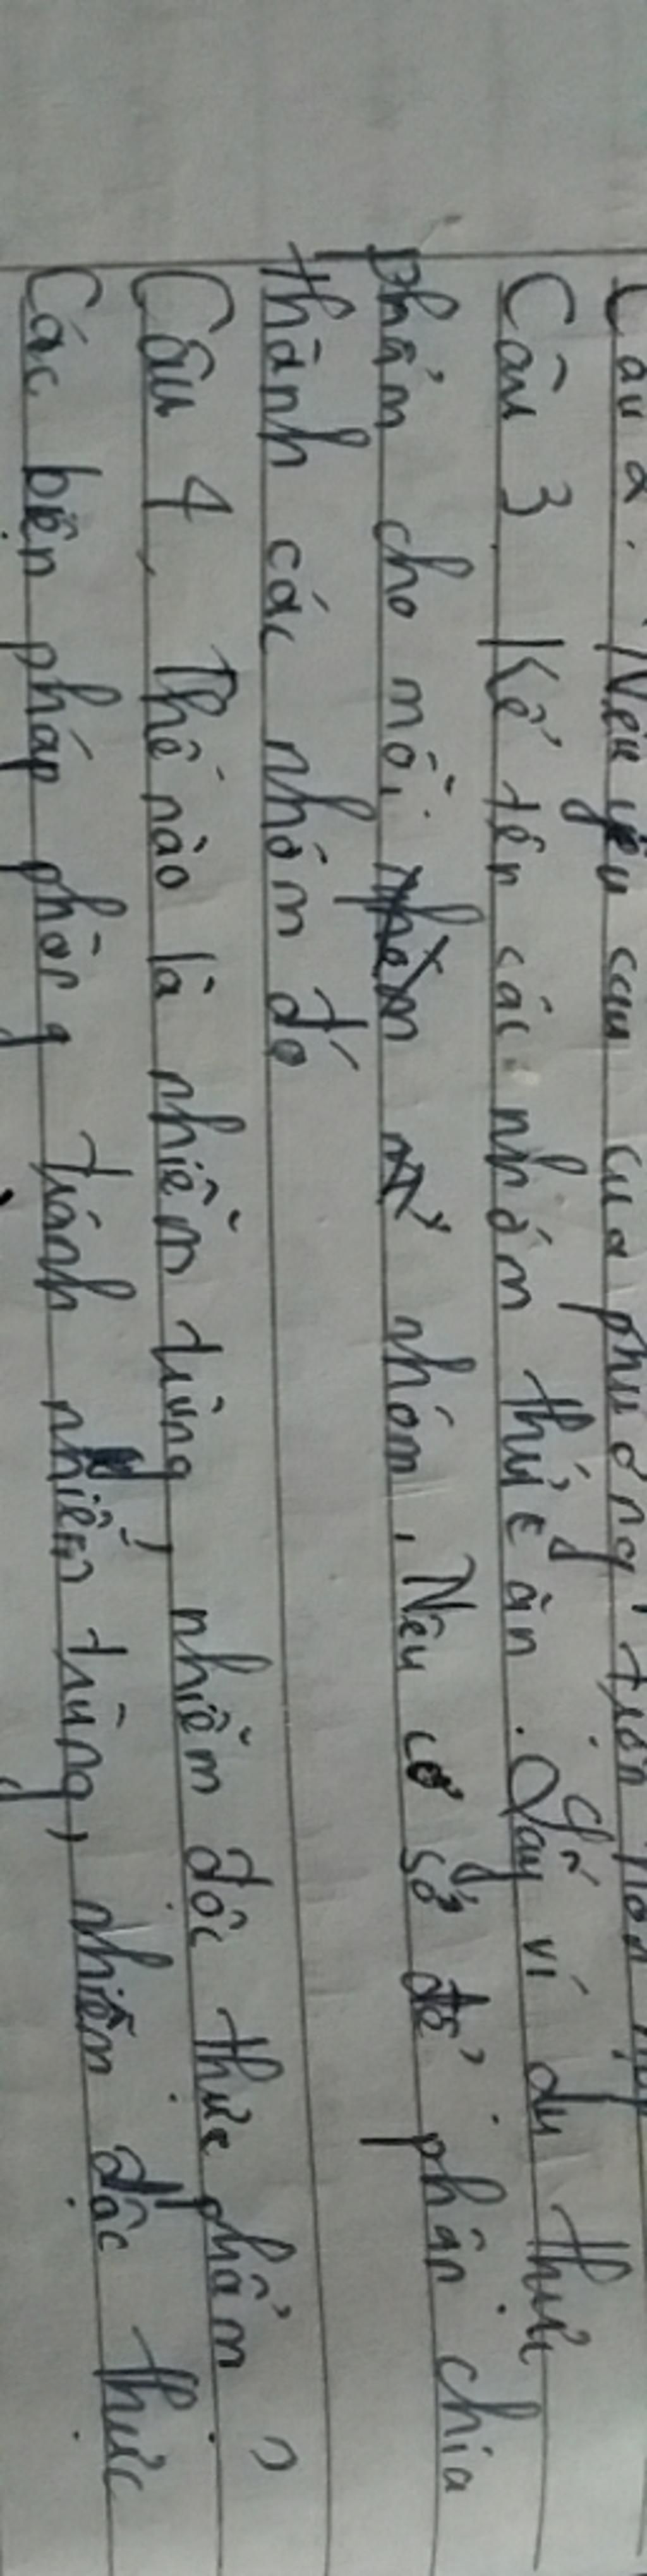 Câu 2. Nêu yêu cầu của phương tiện
Câu 3. Kể tên các nhóm thức ăn. Lấy ví dụ thực
phẩm cho mỗi nhóm. Nêu cơ sở để phân chia
thành các nhóm đó
Câu 4. Thế nào là nhiễm trùng, nhiễm độc thực phẩm?
Các biện pháp phòng tránh nhiễm trùng, nhiễm độc thực